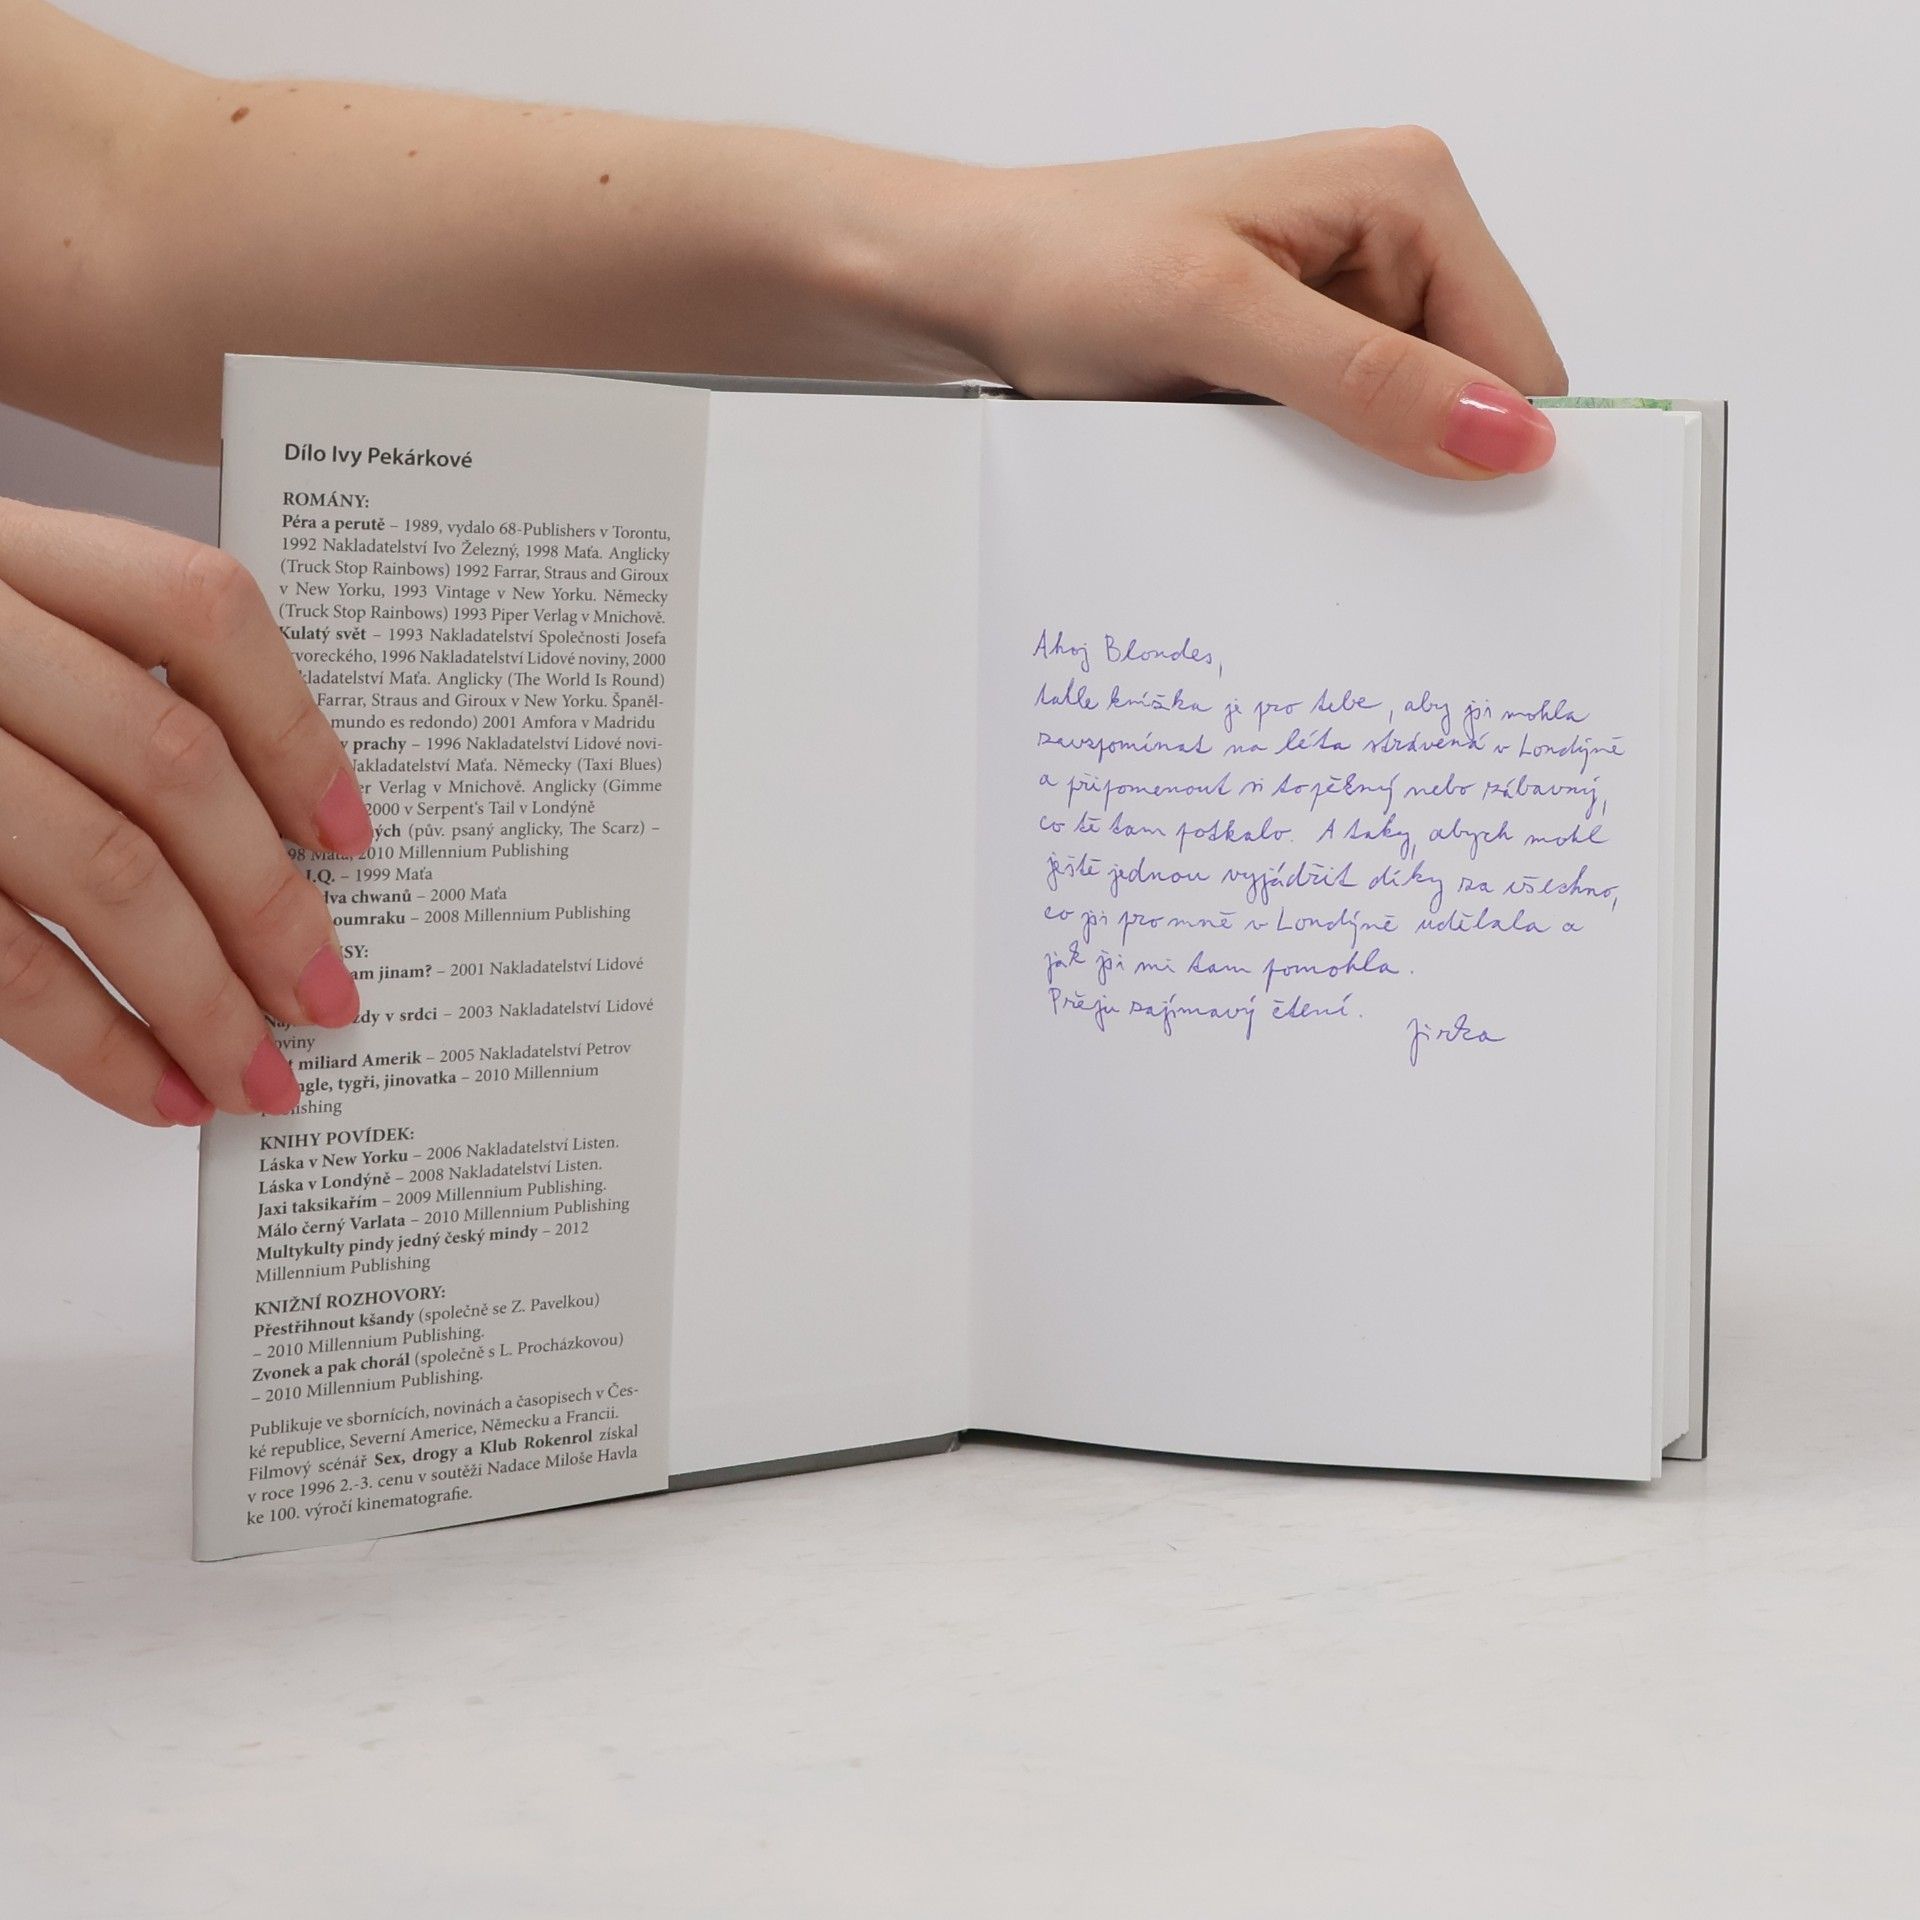 Dílo Ivy Pekárkové
ROMÁNY:
Péra a perutě – 1989, vydalo 68-Publishers v Torontu,
1992 Nakladatelství Ivo Železný, 1998 Maťa. Anglicky
(Truck Stop Rainbows) 1992 Farrar, Straus and Giroux
v New Yorku, 1993 Vintage v New Yorku. Německy
(Truck Stop Rainbows) 1993 Piper Verlag v Mnichově.
Kulatý svět – 1993 Nakladatelství Společnosti Josefa
voreckého, 1996 Nakladatelství Lidové noviny, 2000
kladatelství Maťa. Anglicky (The World Is Round)
Farrar, Straus and Giroux v New Yorku. Španěl-
mundo es redondo) 2001 Amfora v Madridu
prachy – 1996 Nakladatelství Lidové novi-
Nakladatelství Maťa. Německy (Taxi Blues)
Verlag v Mnichově. Anglicky (Gimme
2000 v Serpent's Tail v Londýně
ých (pův. psaný anglicky, The Scarz) –
98 Maťa, 2010 Millennium Publishing
I.Q. – 1999 Maťa
dva chwanů – 2000 Maťa
oumraku – 2008 Millennium Publishing
SY:
am jinam? – 2001 Nakladatelství Lidové
zdy v srdci – 2003 Nakladatelství Lidové
oviny
t miliard Amerik – 2005 Nakladatelství Petrov
ngle, tygři, jinovatka – 2010 Millennium
lishing
KNIHY POVÍDEK:
Láska v New Yorku – 2006 Nakladatelství Listen.
Láska v Londýně – 2008 Nakladatelství Listen.
Jaxi taksikařím – 2009 Millennium Publishing.
Málo černý Varlata – 2010 Millennium Publishing
Multykulty pindy jedný český mindy – 2012
Millennium Publishing
KNIŽNÍ ROZHOVORY:
Přestřihnout kšandy (společně se Z. Pavelkou)
– 2010 Millennium Publishing.
Zvonek a pak chorál (společně s L. Procházkovou)
– 2010 Millennium Publishing.
Publikuje ve sbornících, novinách a časopisech v Čes-
ké republice, Severní Americe, Německu a Francii.
Filmový scénář Sex, drogy a Klub Rokenrol získal
v roce 1996 2.-3. cenu v soutěži Nadace Miloše Havla
ke 100. výročí kinematografie.
Ahoj Blondes,
tahle knížka je pro tebe, aby jsi mohla
zavzpomínat na léta strávená v Londýně
a připomenout si to pěkný nebo zábavný,
co tě tam potkalo. A taky, abych mohl
ještě jednou vyjádřit díky za všechno,
co jsi pro mně v Londýně udělala a
jak jsi mi tam pomohla.
Přeju zajímavý čtení.
Jirka